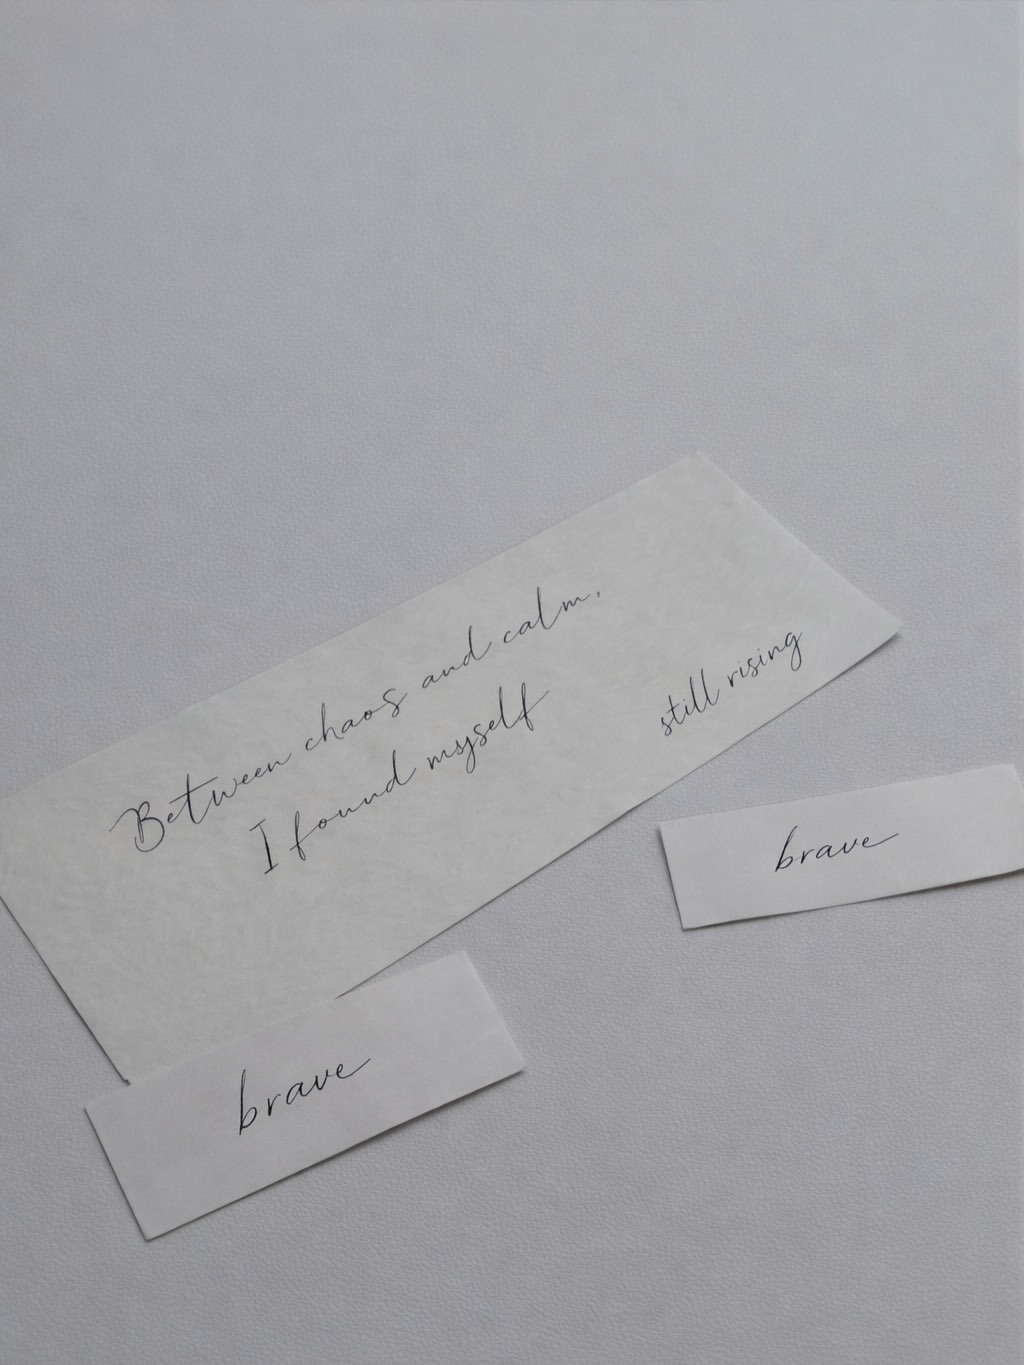 Between chaos and calm,
I found myself
still rising
brave
brave